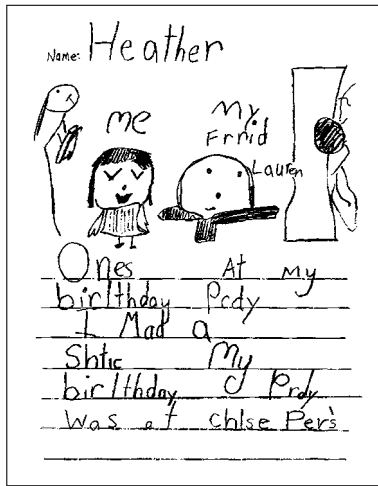 Name: Heather
me
My
Frnid
Lauren
Ones At My
birlthday Prdy
I Mad a
Shtic My
birlthday Prdy
Was at chlse Per's